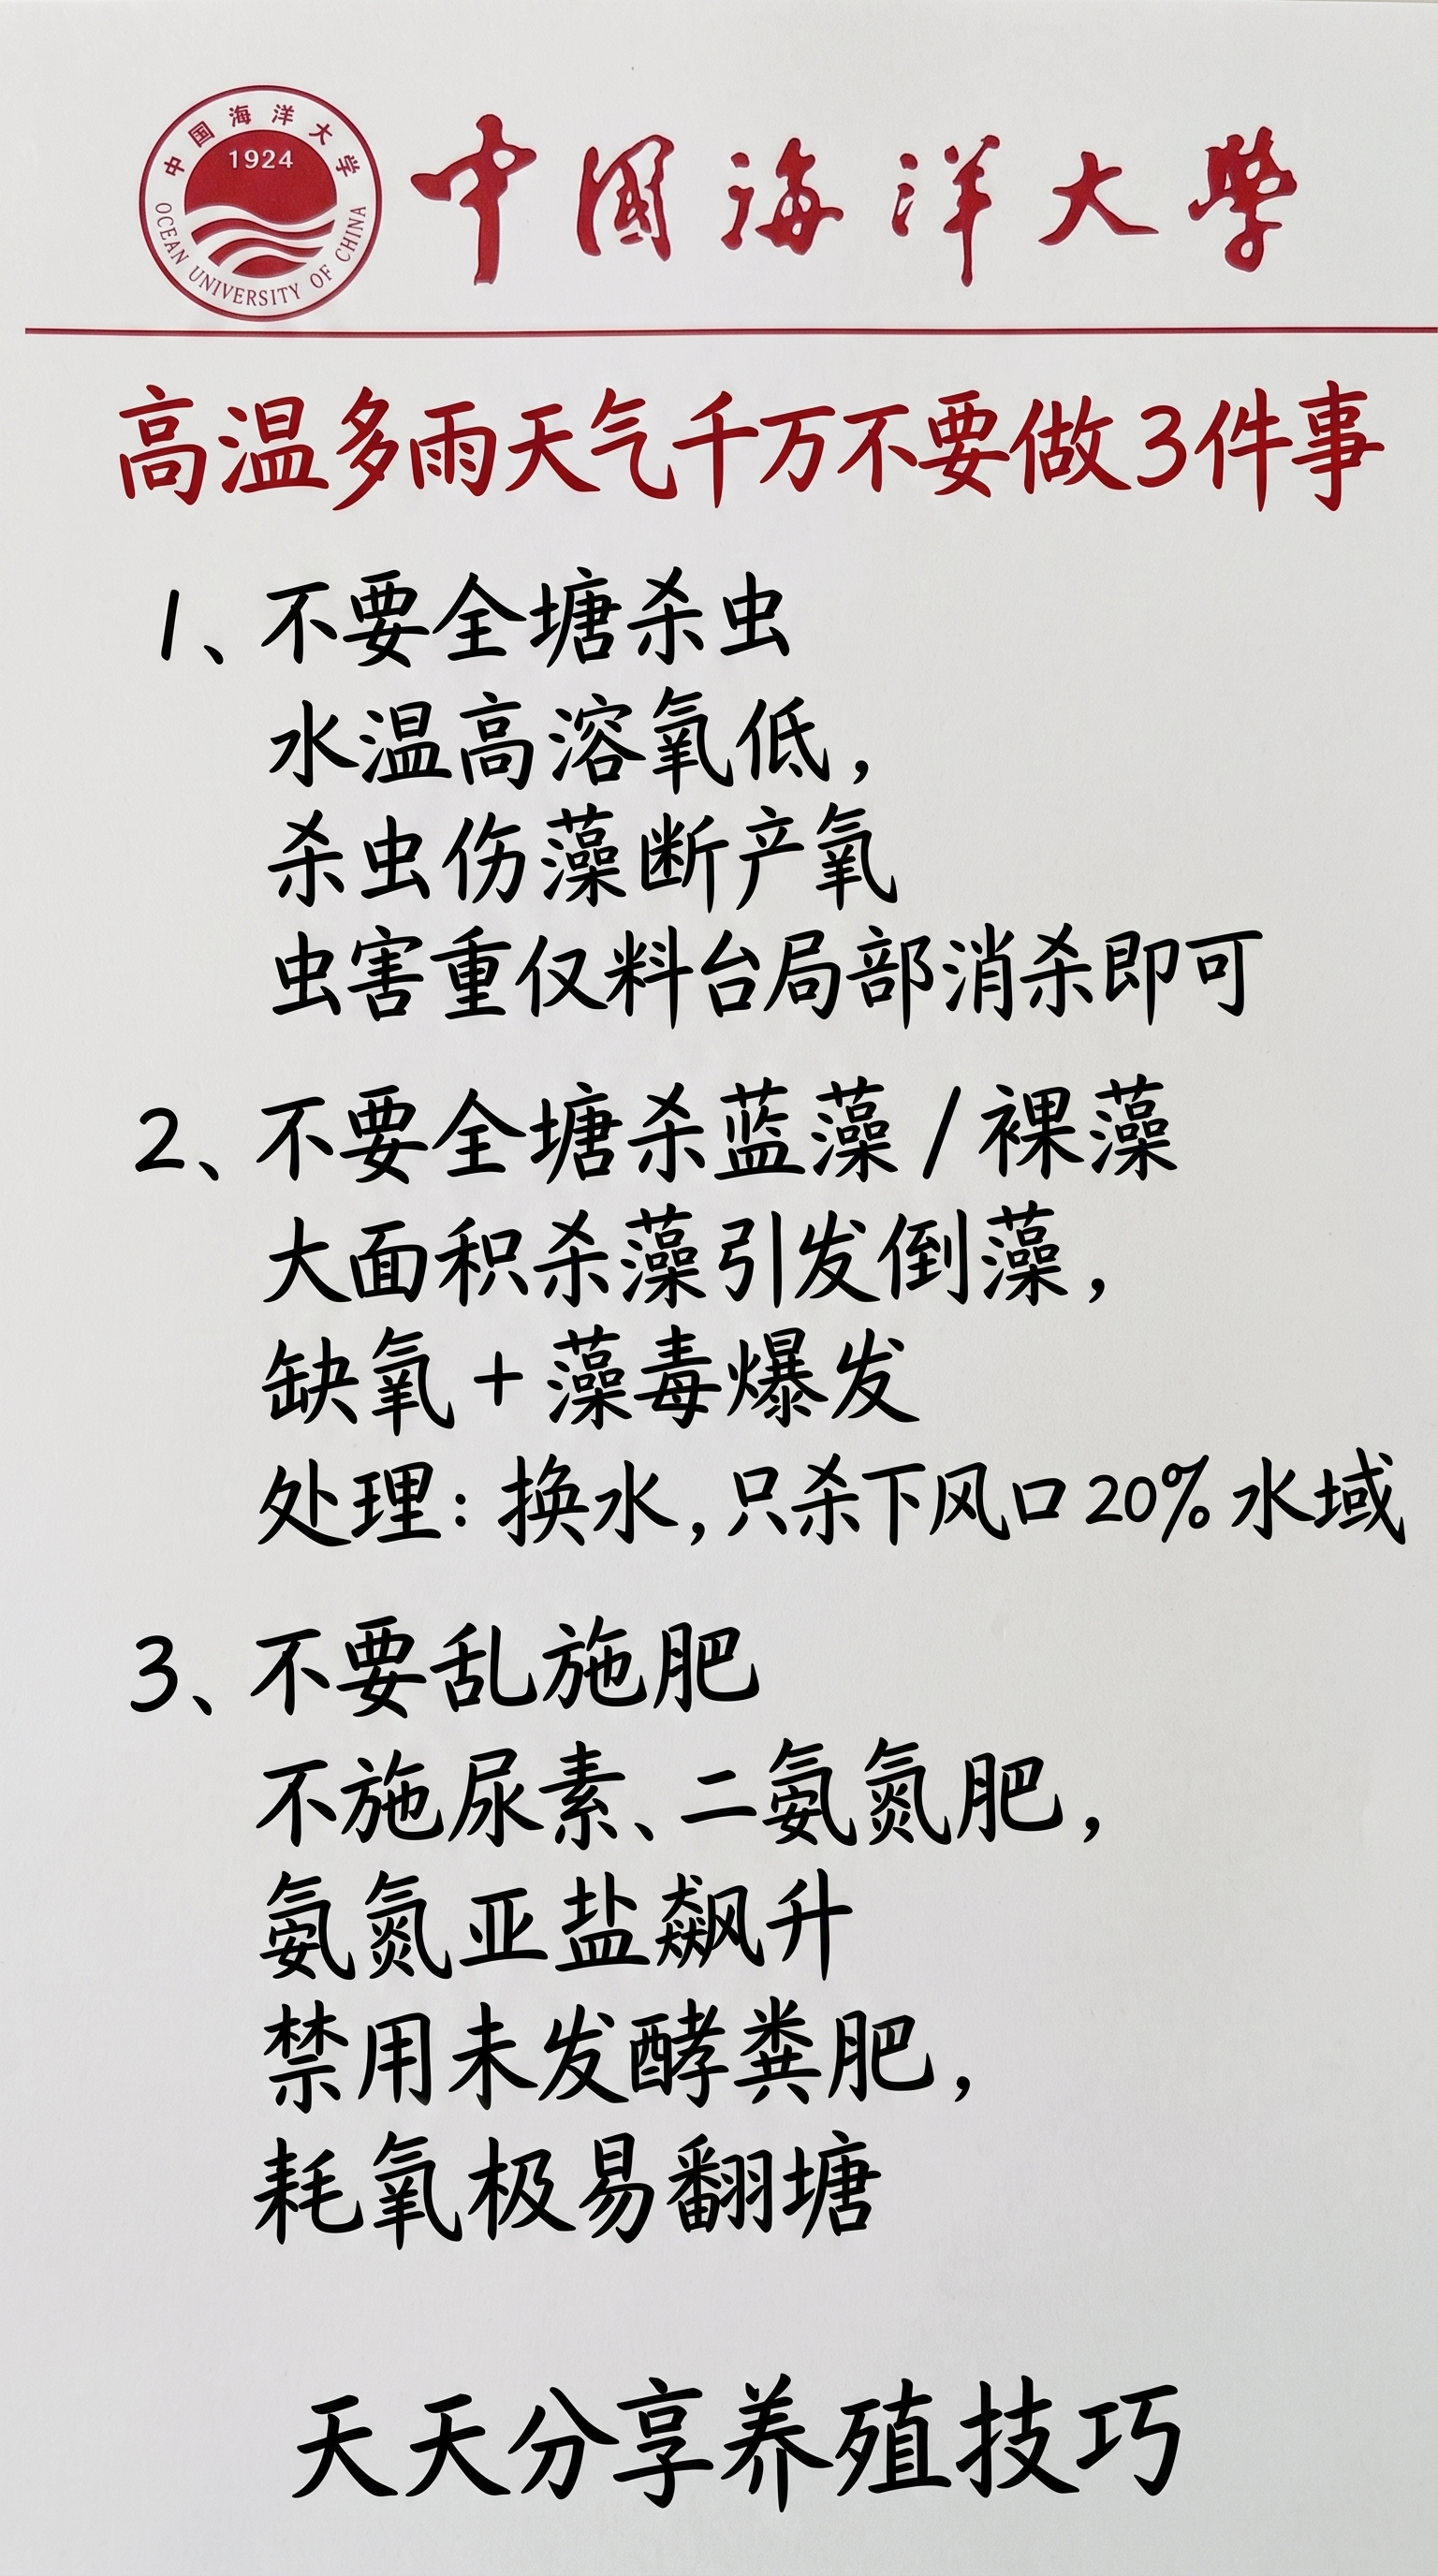 中国海洋大学
1924
OCEAN UNIVERSITY OF CHINA
中國海洋大學
高温多雨天气千万不要做3件事
1、不要全塘杀虫
水温高溶氧低，
杀虫伤藻断产氧
虫害重仅料台局部消杀即可
2、不要全塘杀蓝藻/裸藻
大面积杀藻引发倒藻，
缺氧+藻毒爆发
处理：换水，只杀下风口20%水域
3、不要乱施肥
不施尿素、二氨氮肥，
氨氮亚盐飙升
禁用未发酵粪肥，
耗氧极易翻塘
天天分享养殖技巧